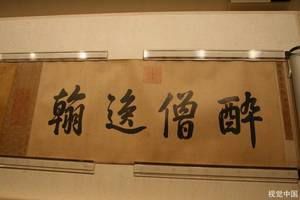 醉僧逸翰
视觉中国